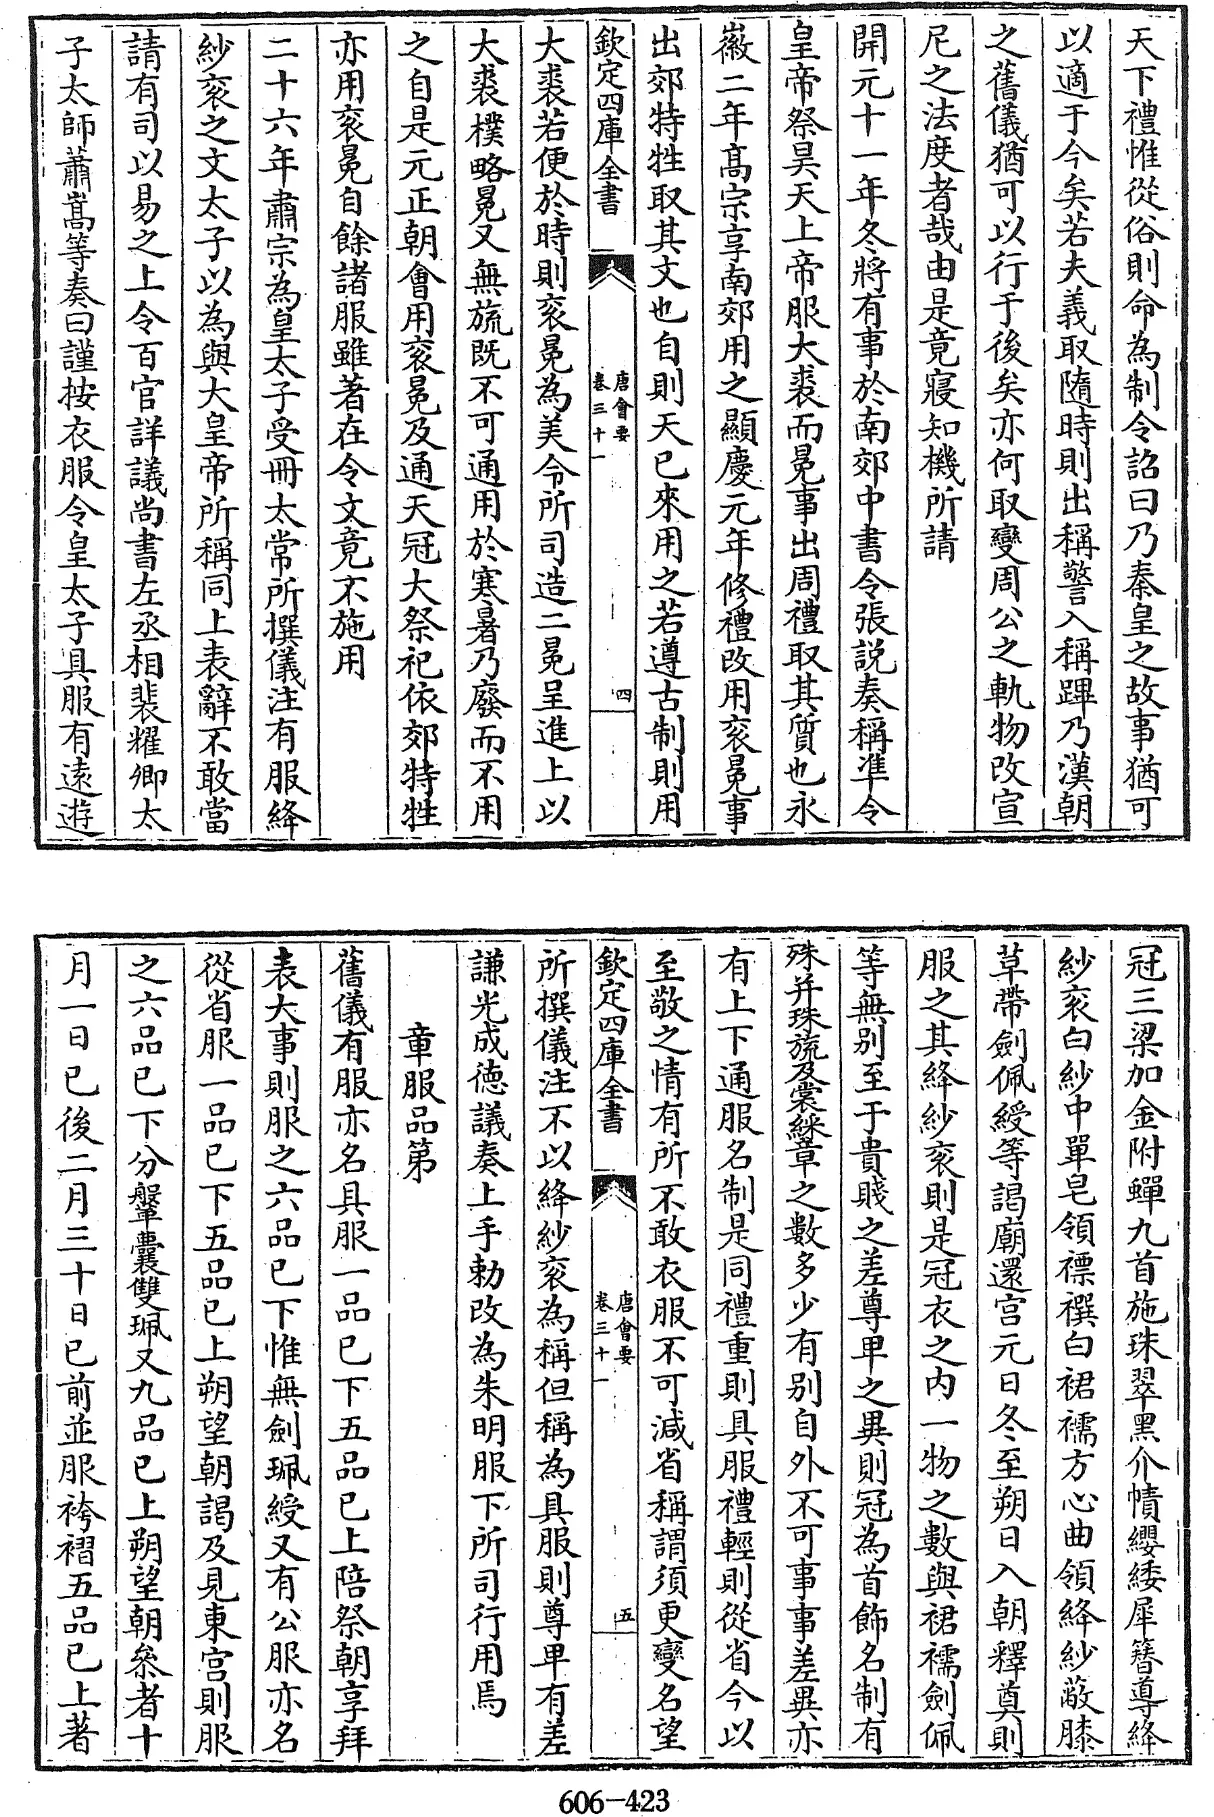 天下禮惟從俗則命為制令詔曰乃秦皇之故事猶可
以適于今矣若夫義取隨時則出稱警入稱蹕乃漢朝
之舊儀猶可以行于後矣亦何取變周公之軌物改宣
尼之法度者哉由是竟寢知機所請
開元十一年冬將有事於南郊中書令張說奏稱準令
皇帝祭昊天上帝服大裘而冕事出周禮取其質也永
徽二年髙宗享南郊用之顯慶元年修禮改用衮冕事
出郊特牲取其文也自則天已來用之若遵古制則用
欽定四庫全書
唐會要
卷三十一
四
大裘若便於時則衮冕為美令所司造二冕呈進上以
大裘樸略冕又無旒既不可通用於寒暑乃廢而不用
之自是元正朝會用衮冕及通天冠大祭祀依郊特牲
亦用衮冕自餘諸服雖著在令文竟不施用
二十六年肅宗為皇太子受冊太常所撰儀注有服絳
紗衮之文太子以為與大皇帝所稱同上表辭不敢當
請有司以易之上令百官詳議尚書左丞相裴耀卿太
子太師蕭嵩等奏曰謹按衣服令皇太子具服有遠遊
冠三梁加金附蟬九首施珠翠黑介幘纓緌犀簪導絳
紗衮白紗中單皂領褾襈白裙襦方心曲領絳紗蔽膝
草帶劍佩綬等謁廟還宫元日冬至朔日入朝釋奠則
服之其絳紗衮則是冠衣之内一物之數與裙襦劍佩
等無别至于貴賤之差尊卑之異則冠為首飾名制有
殊并珠旒及裳綵章之數多少有别自外不可事事差異亦
有上下通服名制是同禮重則具服禮輕則從省今以
至敬之情有所不敢衣服不可減省稱謂須更變名望
欽定四庫全書
唐會要
卷三十一
五
所撰儀注不以絳紗衮為稱但稱為具服則尊卑有差
謙光成德議奏上手勅改為朱明服下所司行用焉
章服品第
舊儀有服亦名具服一品已下五品已上陪祭朝享拜
表大事則服之六品已下惟無劍珮綬又有公服亦名
從省服一品已下五品已上朔望朝謁及見東宫則服
之六品已下分鞶囊雙珮又九品已上朔望朝叅者十
月一日已後二月三十日已前並服袴褶五品已上著
606-423